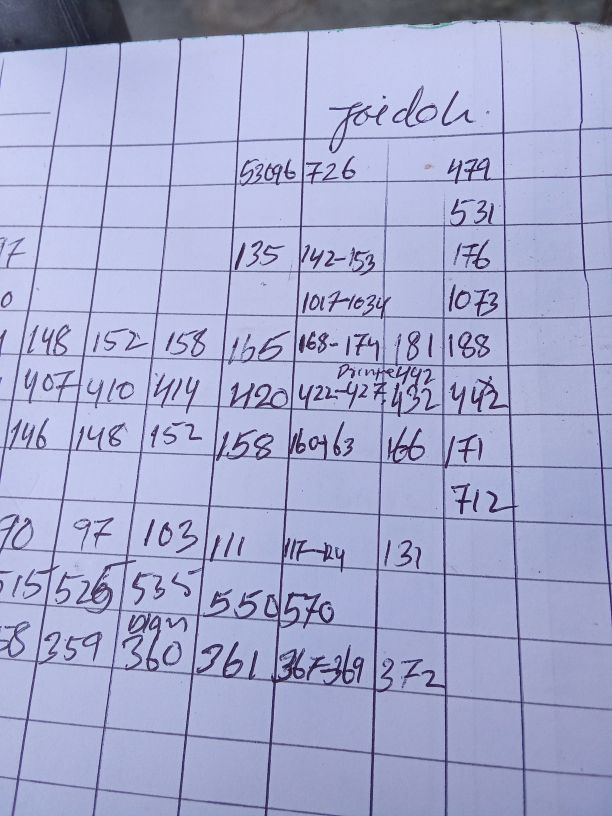 53096 726 479
531
97 135 142-153 176
0 1017-1034 1073
148 152 158 165 168-174 181 188
442
407 410 414 420 422-427 432 442
146 148 152 158 160-163 166 171
712
90 97 103 111 117-124 131
515 525 535 550 570
58 359 360 361 367-369 372